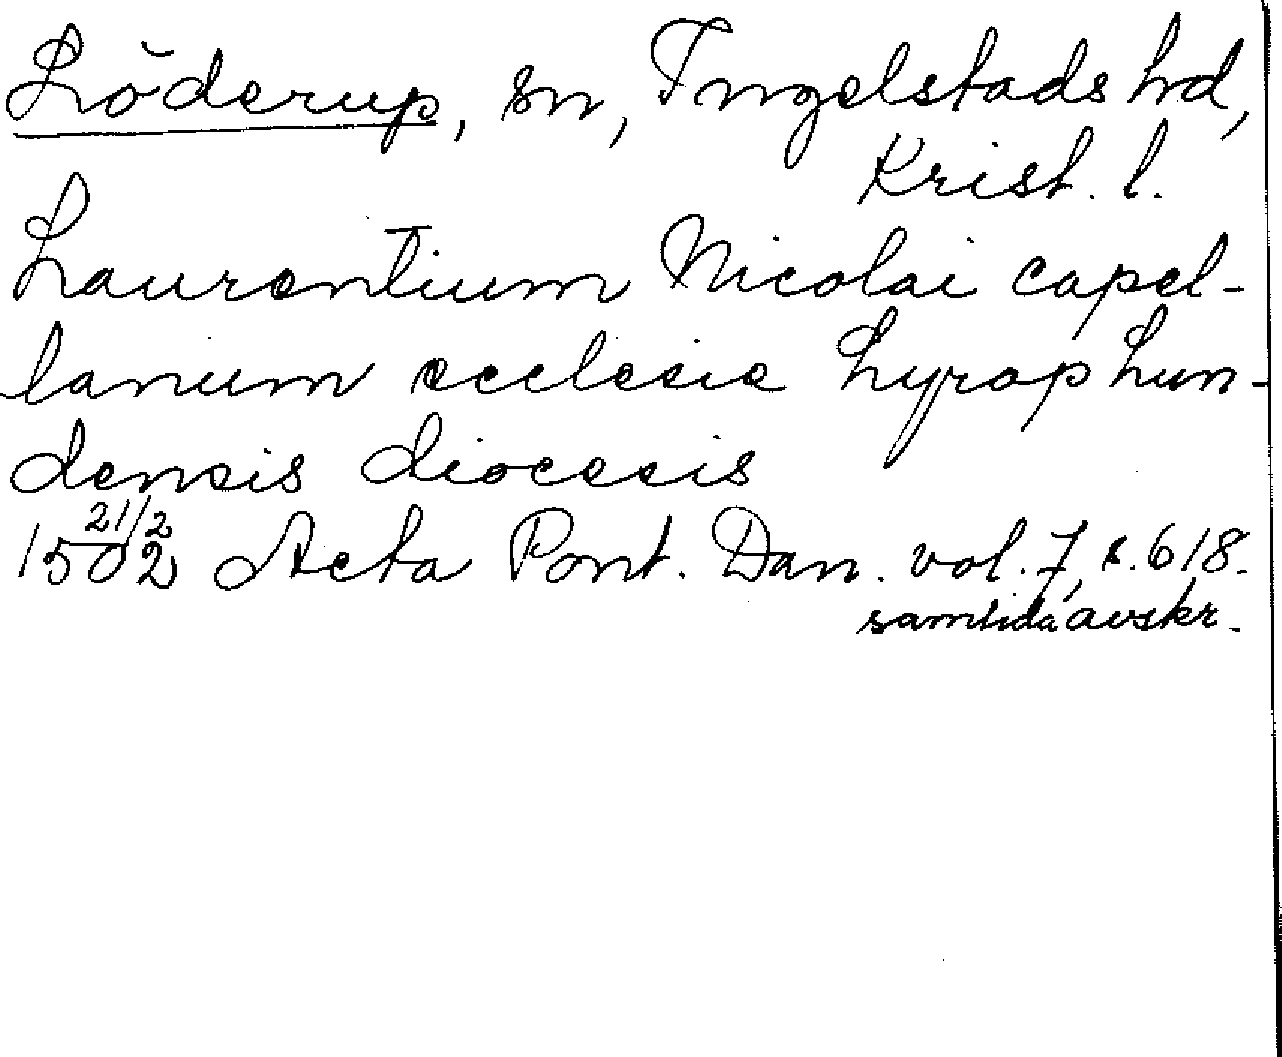 Löderup, sn, Ingelstads hd,
Krist. l.
Laurentium Nicolai capel-
lanum ecclesie Lyrop Lun-
densis diocesis
1502 21/2 Acta Pont. Dan. vol. 7, s. 618.
samtida avskr.